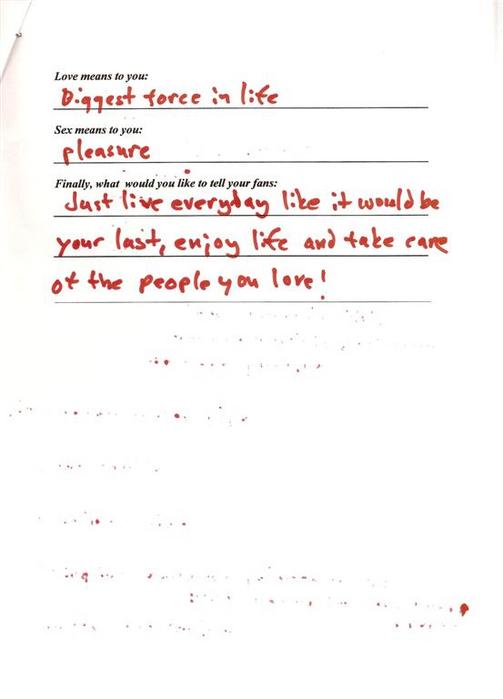 Love means to you:
Biggest force in life
Sex means to you:
pleasure
Finally, what would you like to tell your fans:
Just live everyday like it would be
your last, enjoy life and take care
of the people you love!